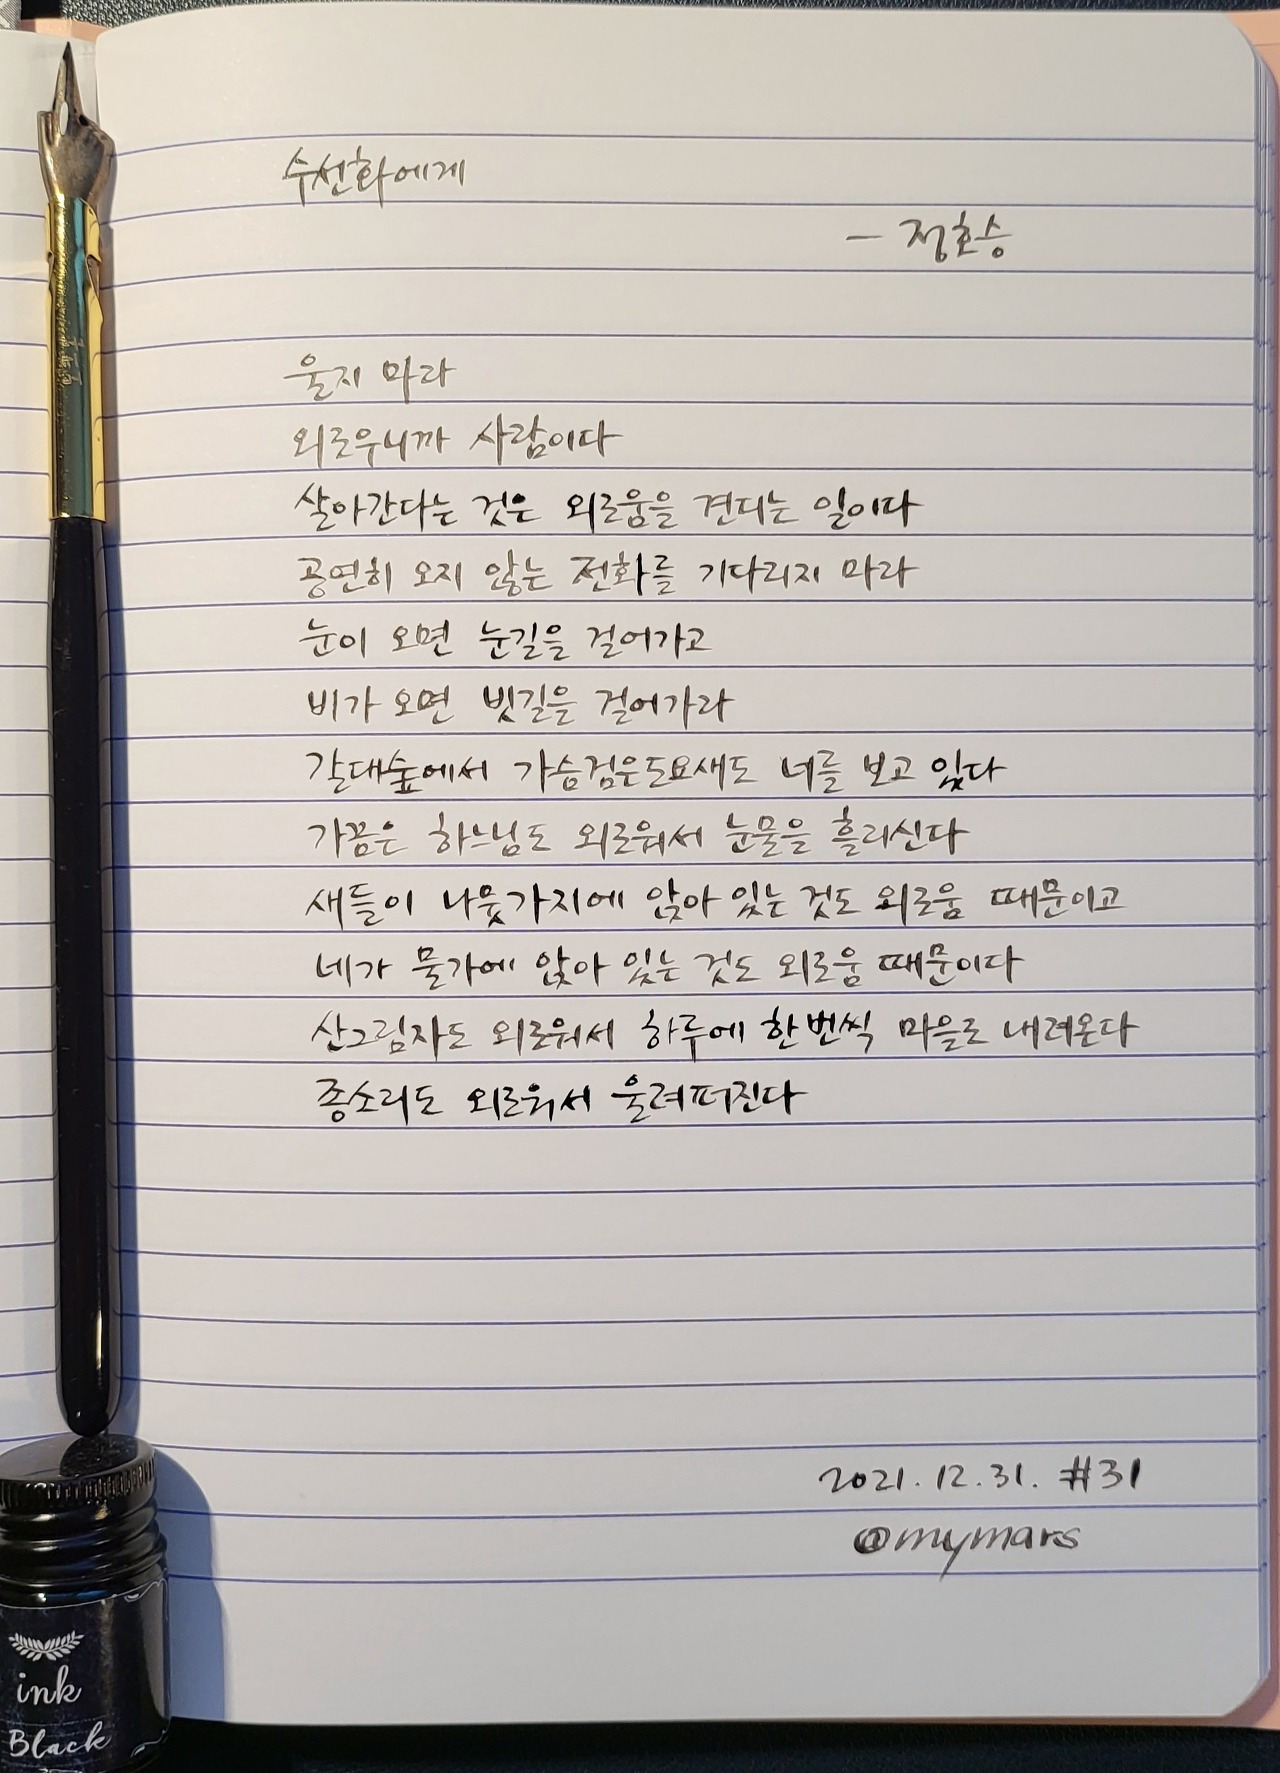 수선화에게
- 정호승
울지 마라
외로우니까 사람이다
살아간다는 것은 외로움을 견디는 일이다
공연히 오지 않는 전화를 기다리지 마라
눈이 오면 눈길을 걸어가고
비가 오면 빗길을 걸어가라
갈대숲에서 가슴검은도요새도 너를 보고 있다
가끔은 하느님도 외로워서 눈물을 흘리신다
새들이 나뭇가지에 앉아 있는 것도 외로움 때문이고
네가 물가에 앉아 있는 것도 외로움 때문이다
산그림자도 외로워서 하루에 한번씩 마을로 내려온다
종소리도 외로워서 울려퍼진다
2021.12.31. #31
@mymars
ink
Black